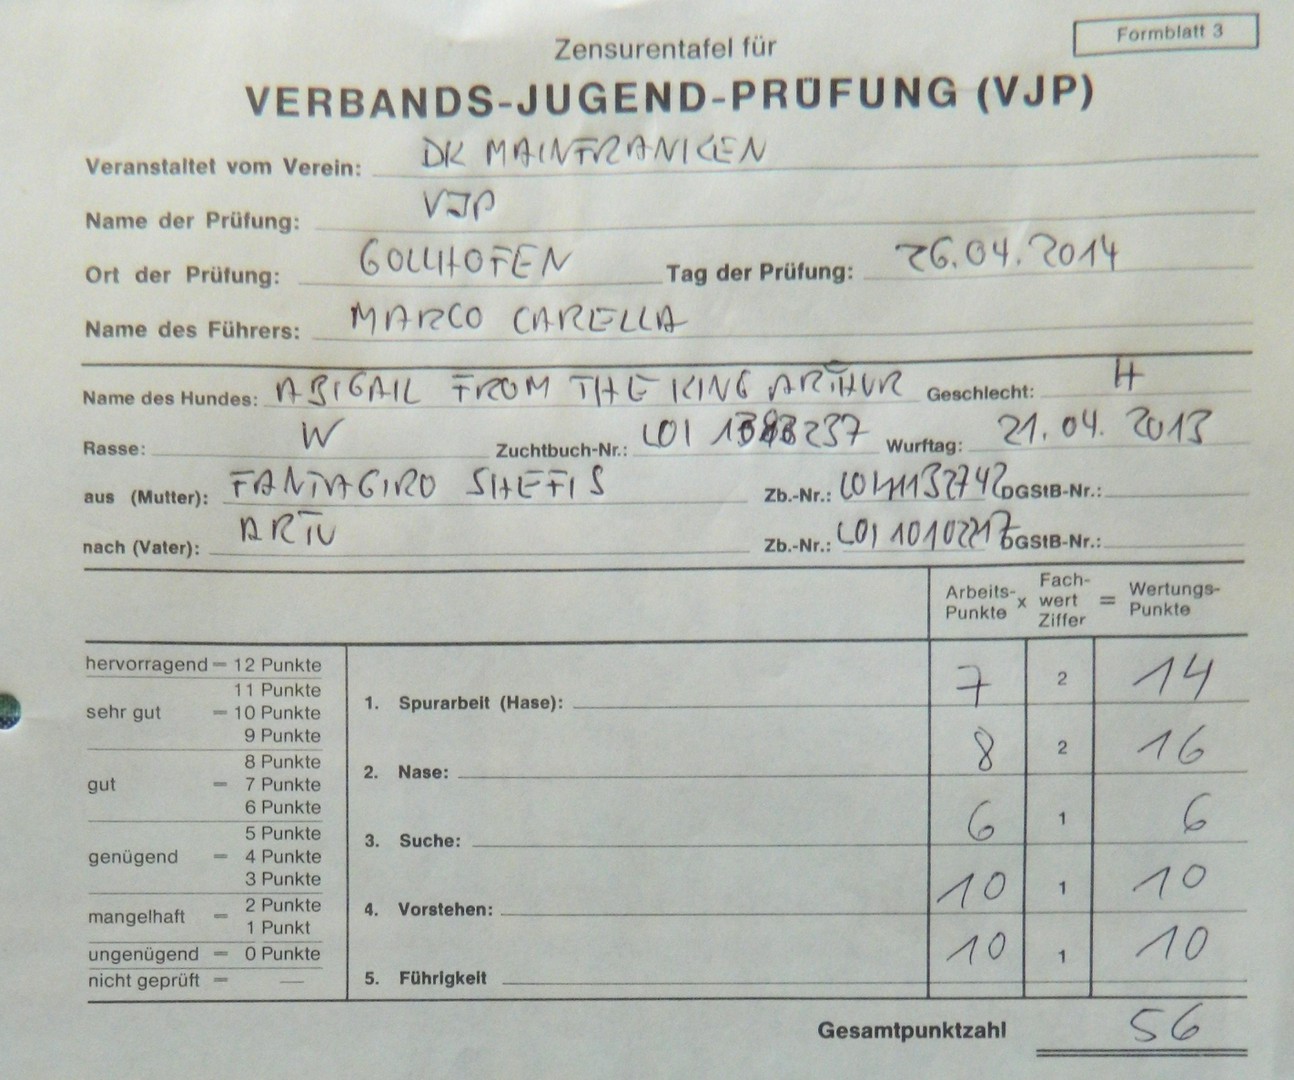 Formblatt 3
Zensurentafel für
VERBANDS-JUGEND-PRÜFUNG (VJP)
Veranstaltet vom Verein: DK MAINFRANKEN
Name der Prüfung: VJP
Ort der Prüfung: GOLLHOFEN Tag der Prüfung: 26.04.2014
Name des Führers: MARCO CARELLA
Name des Hundes: ABIGAIL FROM THE KING ARTHUR Geschlecht: H
Rasse: W Zuchtbuch-Nr.: LOI Wurftag: 21.04.2013
aus (Mutter): FANTAGIRO SHEFIS Zb.-Nr.: DGStB-Nr.:
nach (Vater): ARTU Zb.-Nr.: LOI DGStB-Nr.:
Arbeits-Punkte x Fach-wert Ziffer = Wertungs-Punkte
hervorragend = 12 Punkte
11 Punkte
sehr gut = 10 Punkte
9 Punkte
8 Punkte
gut = 7 Punkte
6 Punkte
5 Punkte
genügend = 4 Punkte
3 Punkte
mangelhaft = 2 Punkte
1 Punkt
ungenügend = 0 Punkte
nicht geprüft = —
1. Spurarbeit (Hase): 7 2 14
2. Nase: 8 2 16
3. Suche: 6 1 6
4. Vorstehen: 10 1 10
5. Führigkeit 10 1 10
Gesamtpunktzahl 56